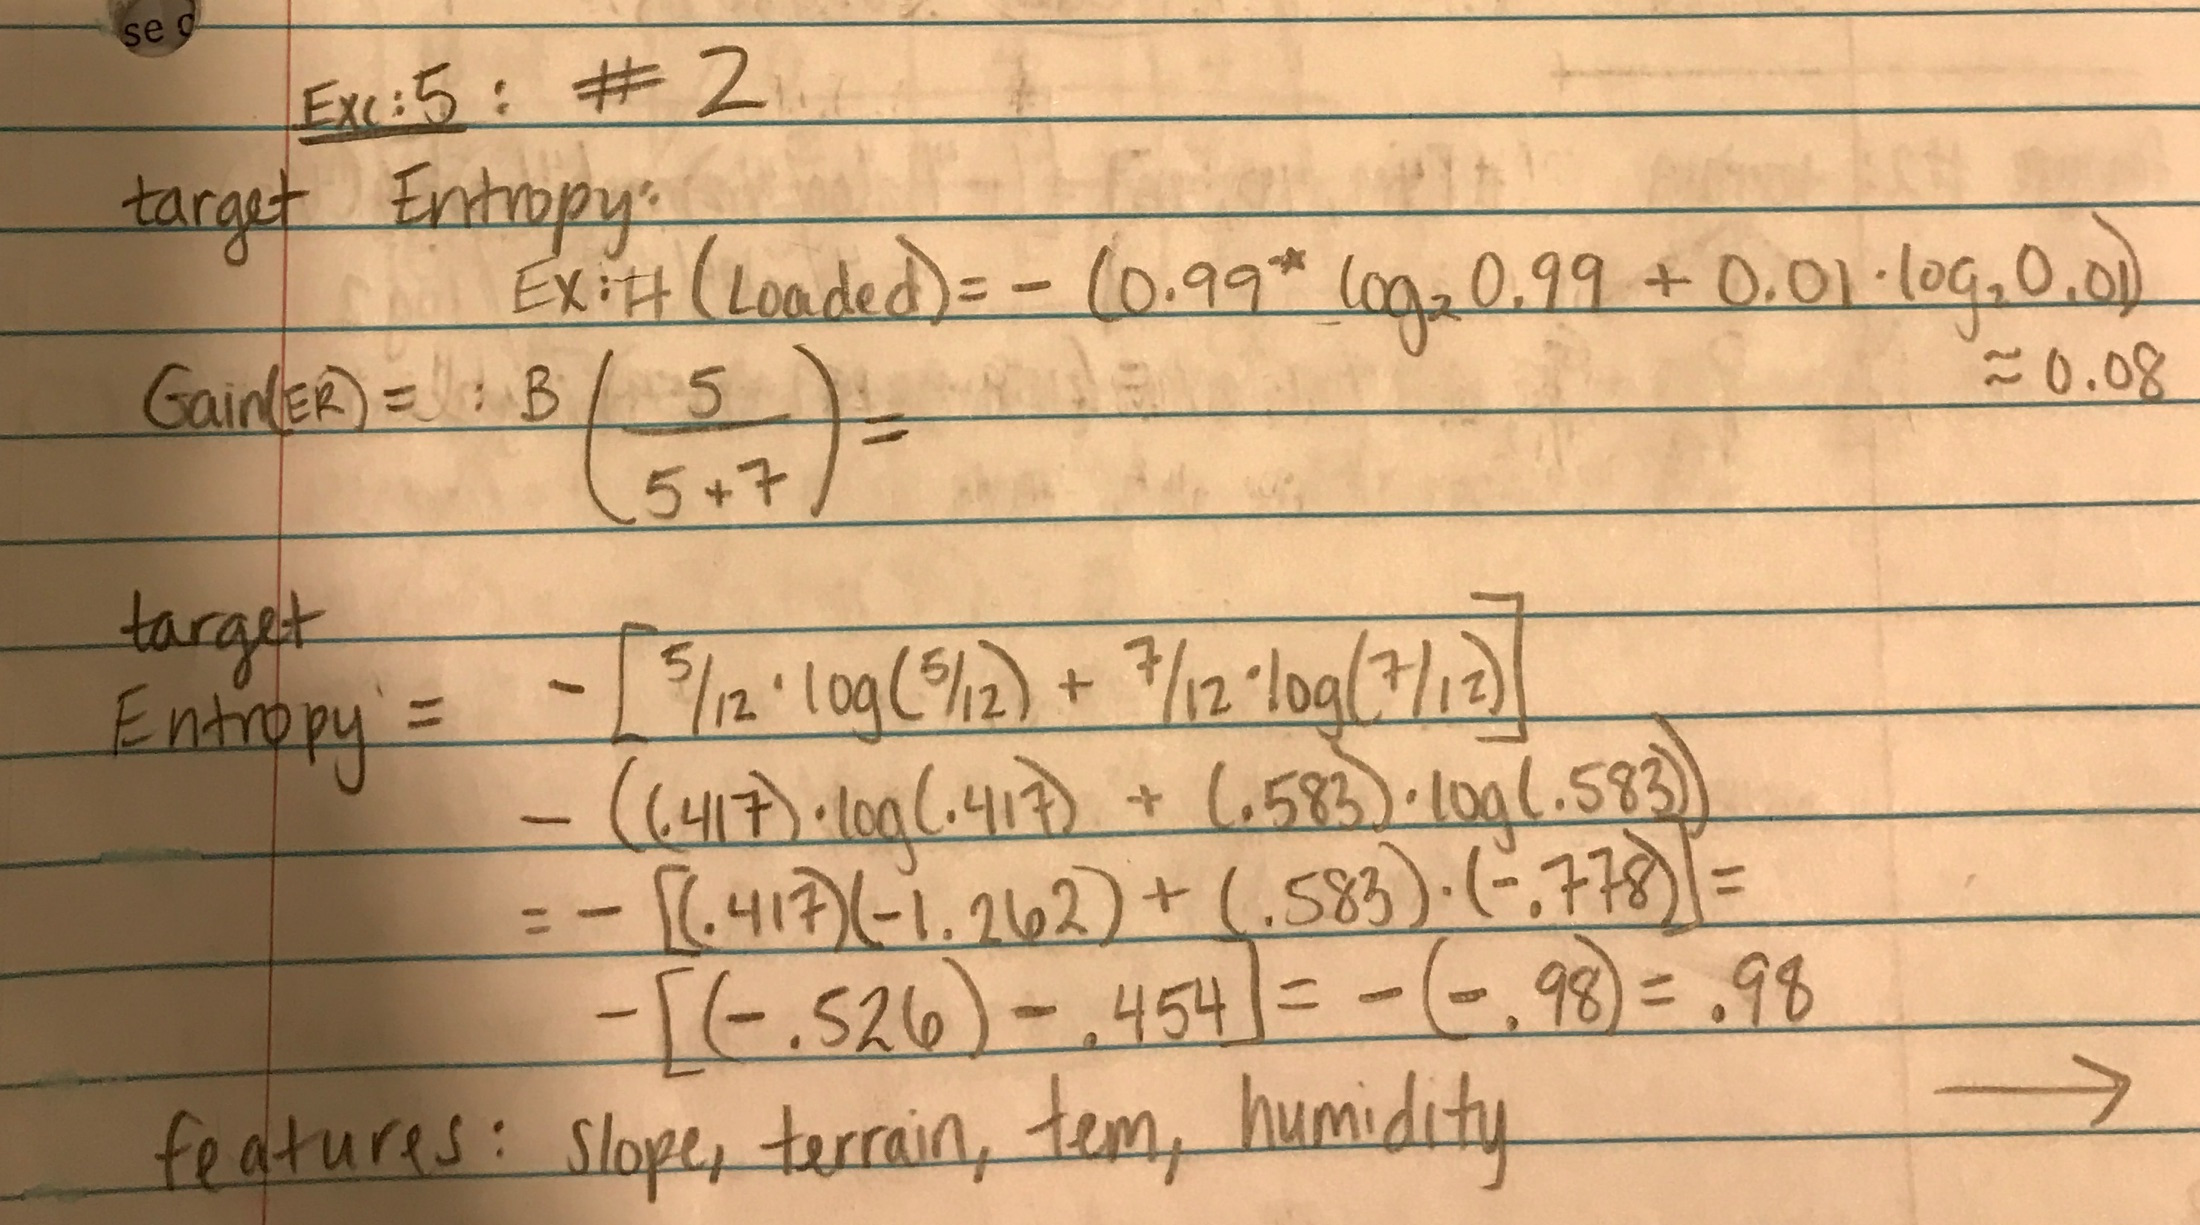 se
Exc:5: # 2
target Entropy:
Ex: H(Loaded) = - (0.99* log₂ 0.99 + 0.01 · log₂ 0.01)
≈ 0.08
Gain(ER) = : B (5/(5+7)) =
target
Entropy = - [5/12 · log(5/12) + 7/12 · log(7/12)]
- ((.417) · log(.417) + (.583) · log(.583))
= - [(.417)(-1.262) + (.583) · (-.778)] =
- [(-.526) - .454] = - (-.98) = .98
features: slope, terrain, tem, humidity →